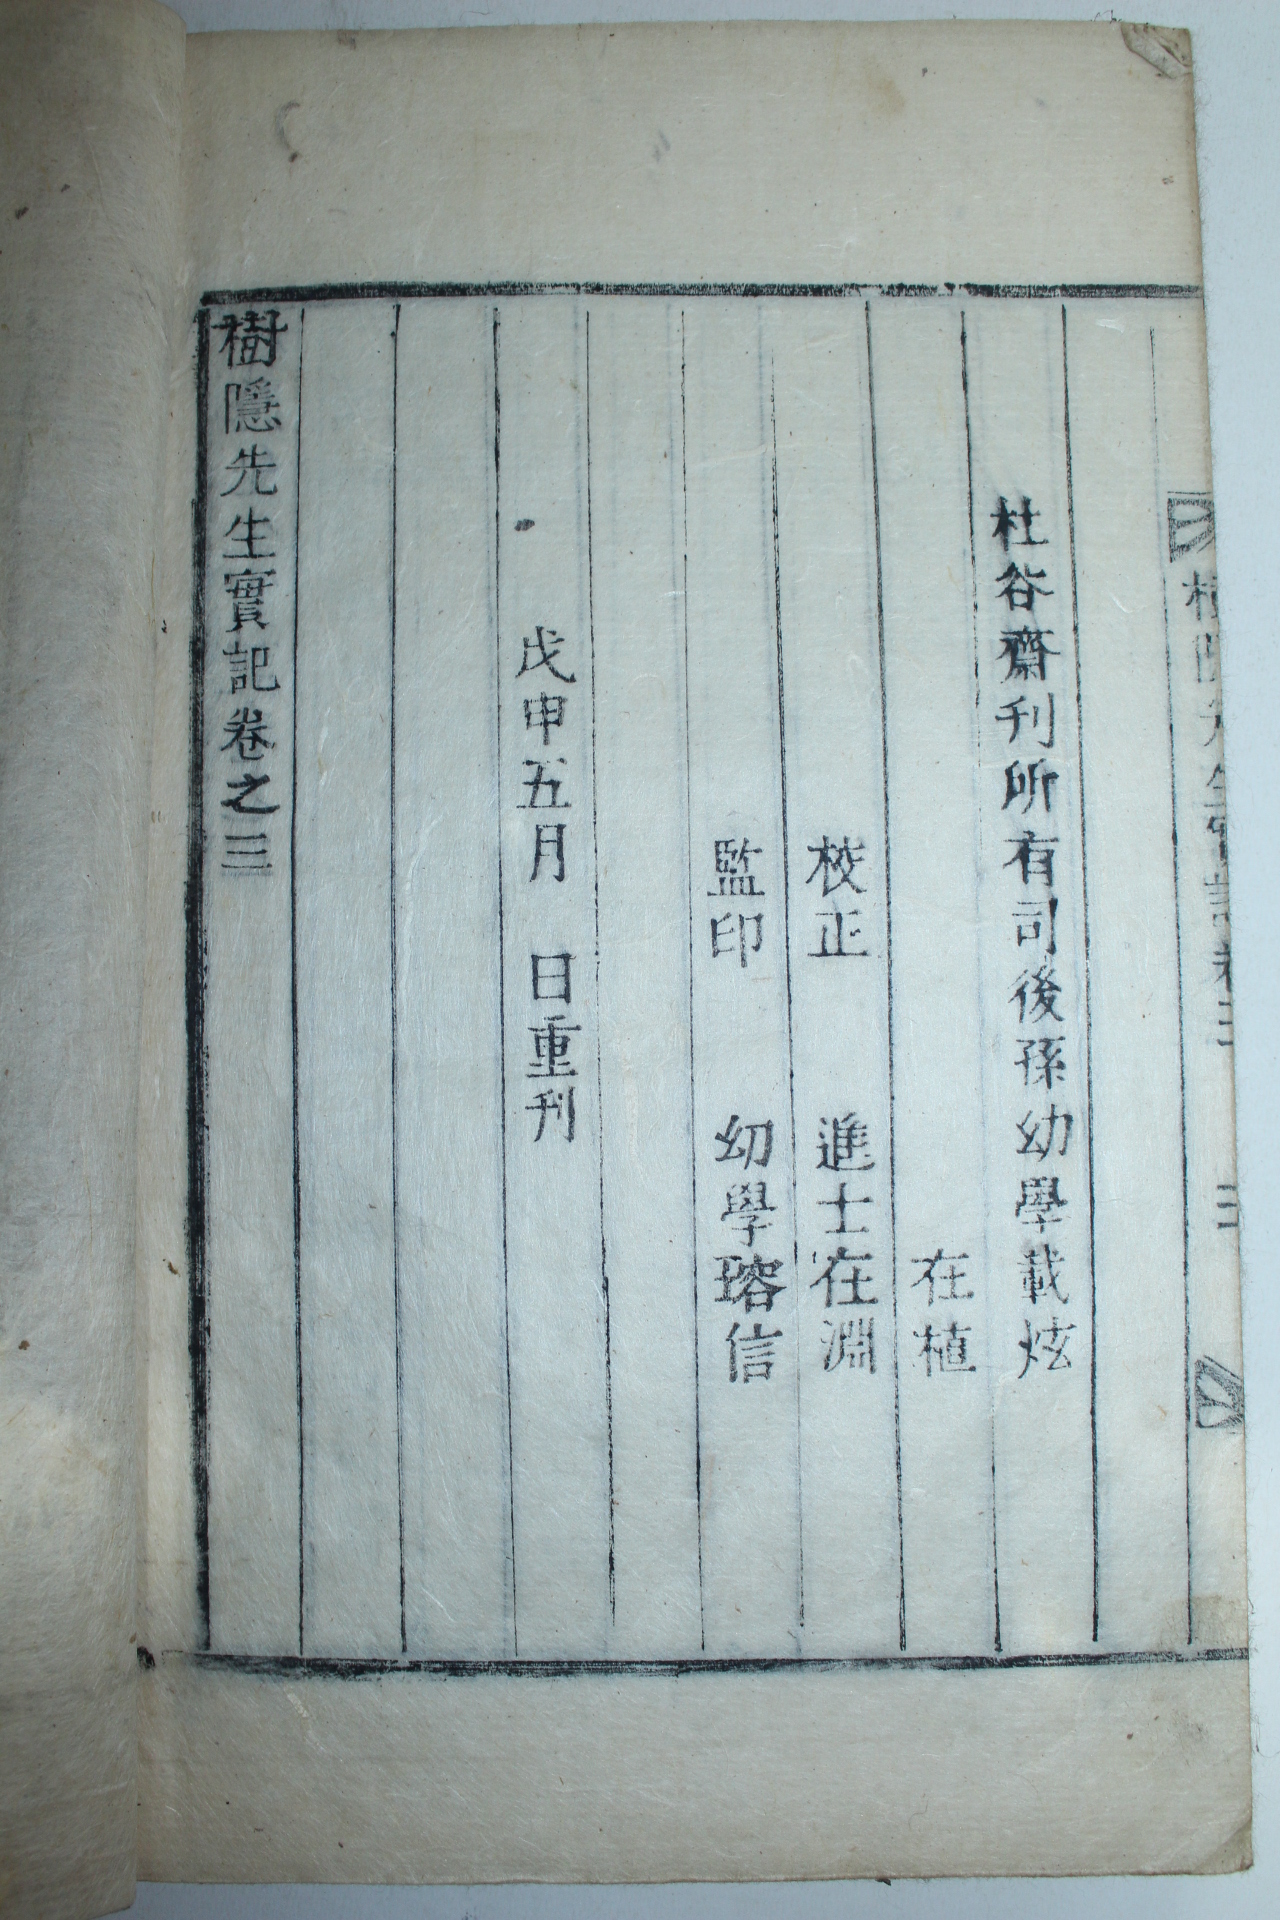 杜谷齋刊所有司後孫幼學載炫
在植
校正 進士在淵
監印 幼學瑢信
戊申五月 日重刊
樹隱先生實記卷之三